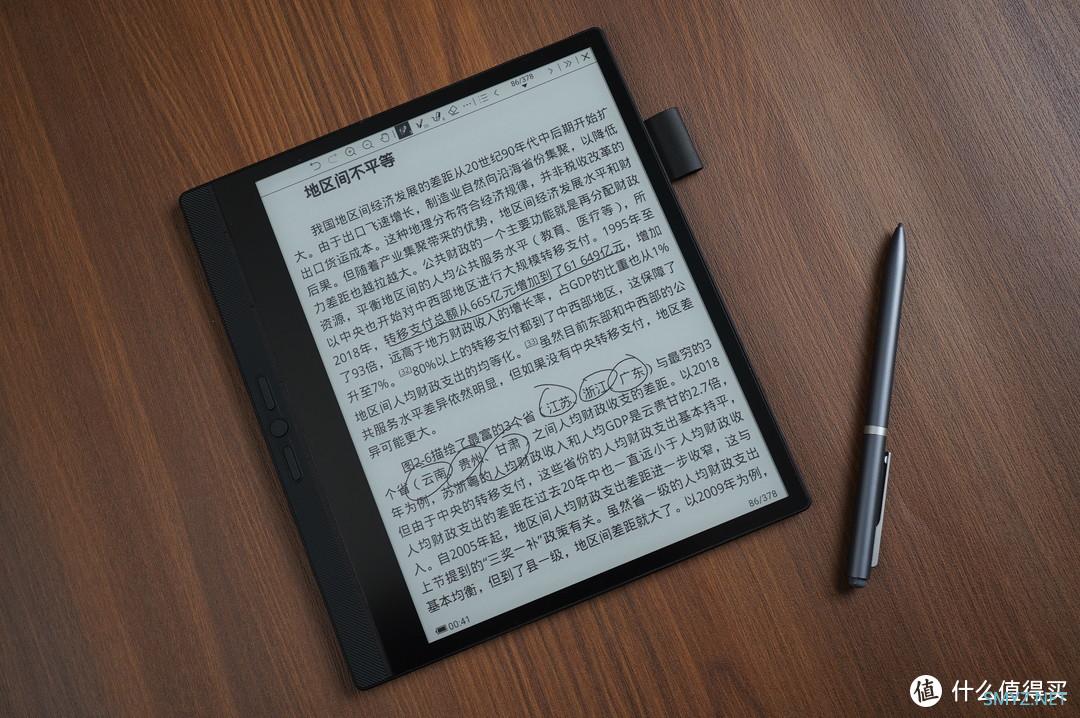 86/378
地区间不平等
我国地区间经济发展的差距从20世纪90年代中后期开始扩
大。由于出口飞速增长，制造业自然向沿海省份集聚，以降低
出口货运成本。这种地理分布符合经济规律，并非税收改革的
后果。但随着产业集聚带来的优势，地区间经济发展水平和财
力差距也越拉越大。公共财政的一个主要功能就是再分配财政
资源，平衡地区间的人均公共服务水平（教育、医疗等），所
以中央也开始对中西部地区进行大规模转移支付。1995年至
2018年，转移支付总额从665亿元增加到了61 649亿元，增加
了93倍，远高于地方财政收入的增长率，占GDP的比重也从1%
升至7%。[32]80%以上的转移支付都到了中西部地区，这保障了
地区间人均财政支出的均等化。[33]虽然目前东部和中西部的公
共服务水平差异依然明显，但如果没有中央转移支付，地区差
异可能更大。
图2-6描绘了最富的3个省（江苏 浙江 广东）与最穷的3
个省（云南 贵州 甘肃）之间人均财政收支的差距。以2018
年为例，苏浙粤的人均财政收入和人均GDP是云贵甘的2.7倍，
但由于中央的转移支付，这些省份的人均财政支出基本持平，
人均财政支出的差距在过去20年中也一直远小于人均财政收
入。自2005年起，地区间人均财政支出差距进一步收窄，这与
上节提到的“三奖一补”政策有关。虽然省一级的人均财政支出
基本均衡，但到了县一级，地区间差距就大了。以2009年为例，
00:41
86/378
值 什么值得买
SMYZ.NET